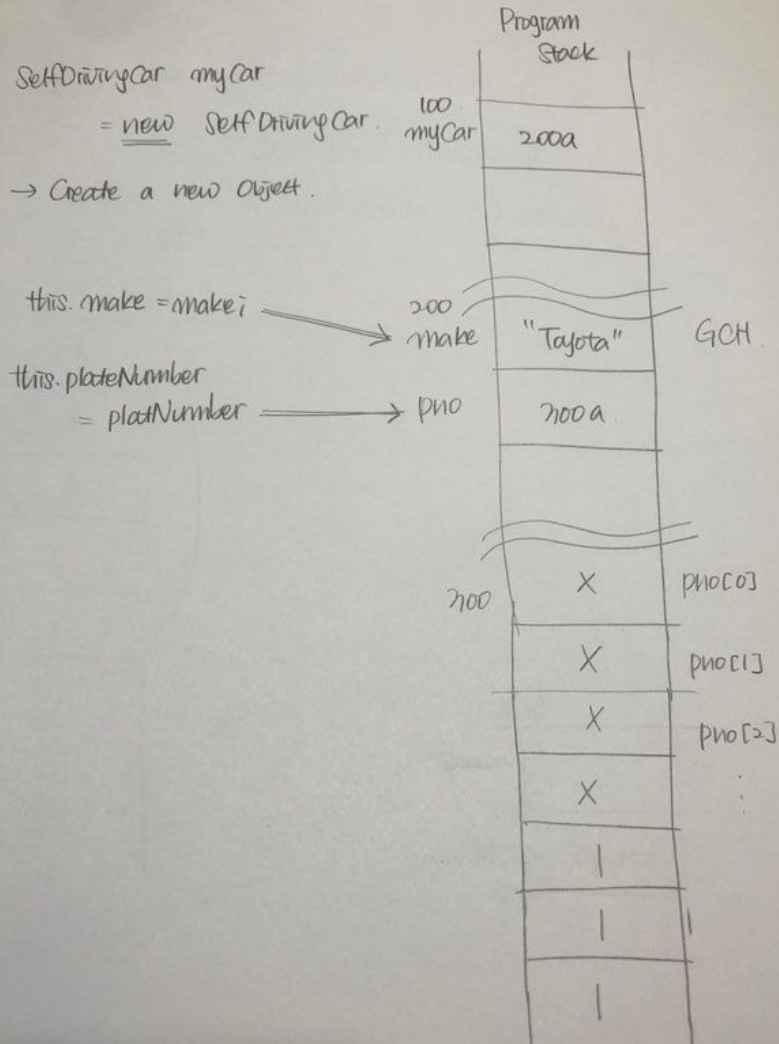 Program
Stack
SelfDrivingCar myCar
= new SelfDrivingCar.
100
myCar
200a
→ Create a new Object.
this.make = make;
200
make
"Toyota"
GCH
this.plateNumber
= platNumber
pno
300a
300
X
pno[0]
X
pno[1]
X
pno[2]
X
⋮
1
1
1
1